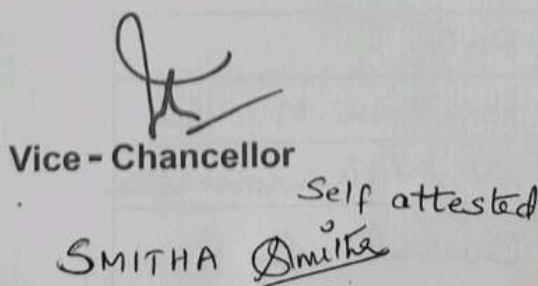 Vice - Chancellor
Self attested
SMITHA Smitha